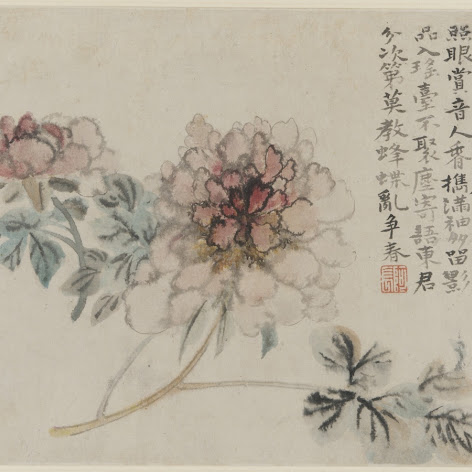 照眼賞音人香携滿袖留影
品入瑤臺不聚塵寄語東君
分次第莫教蜂蝶亂爭春